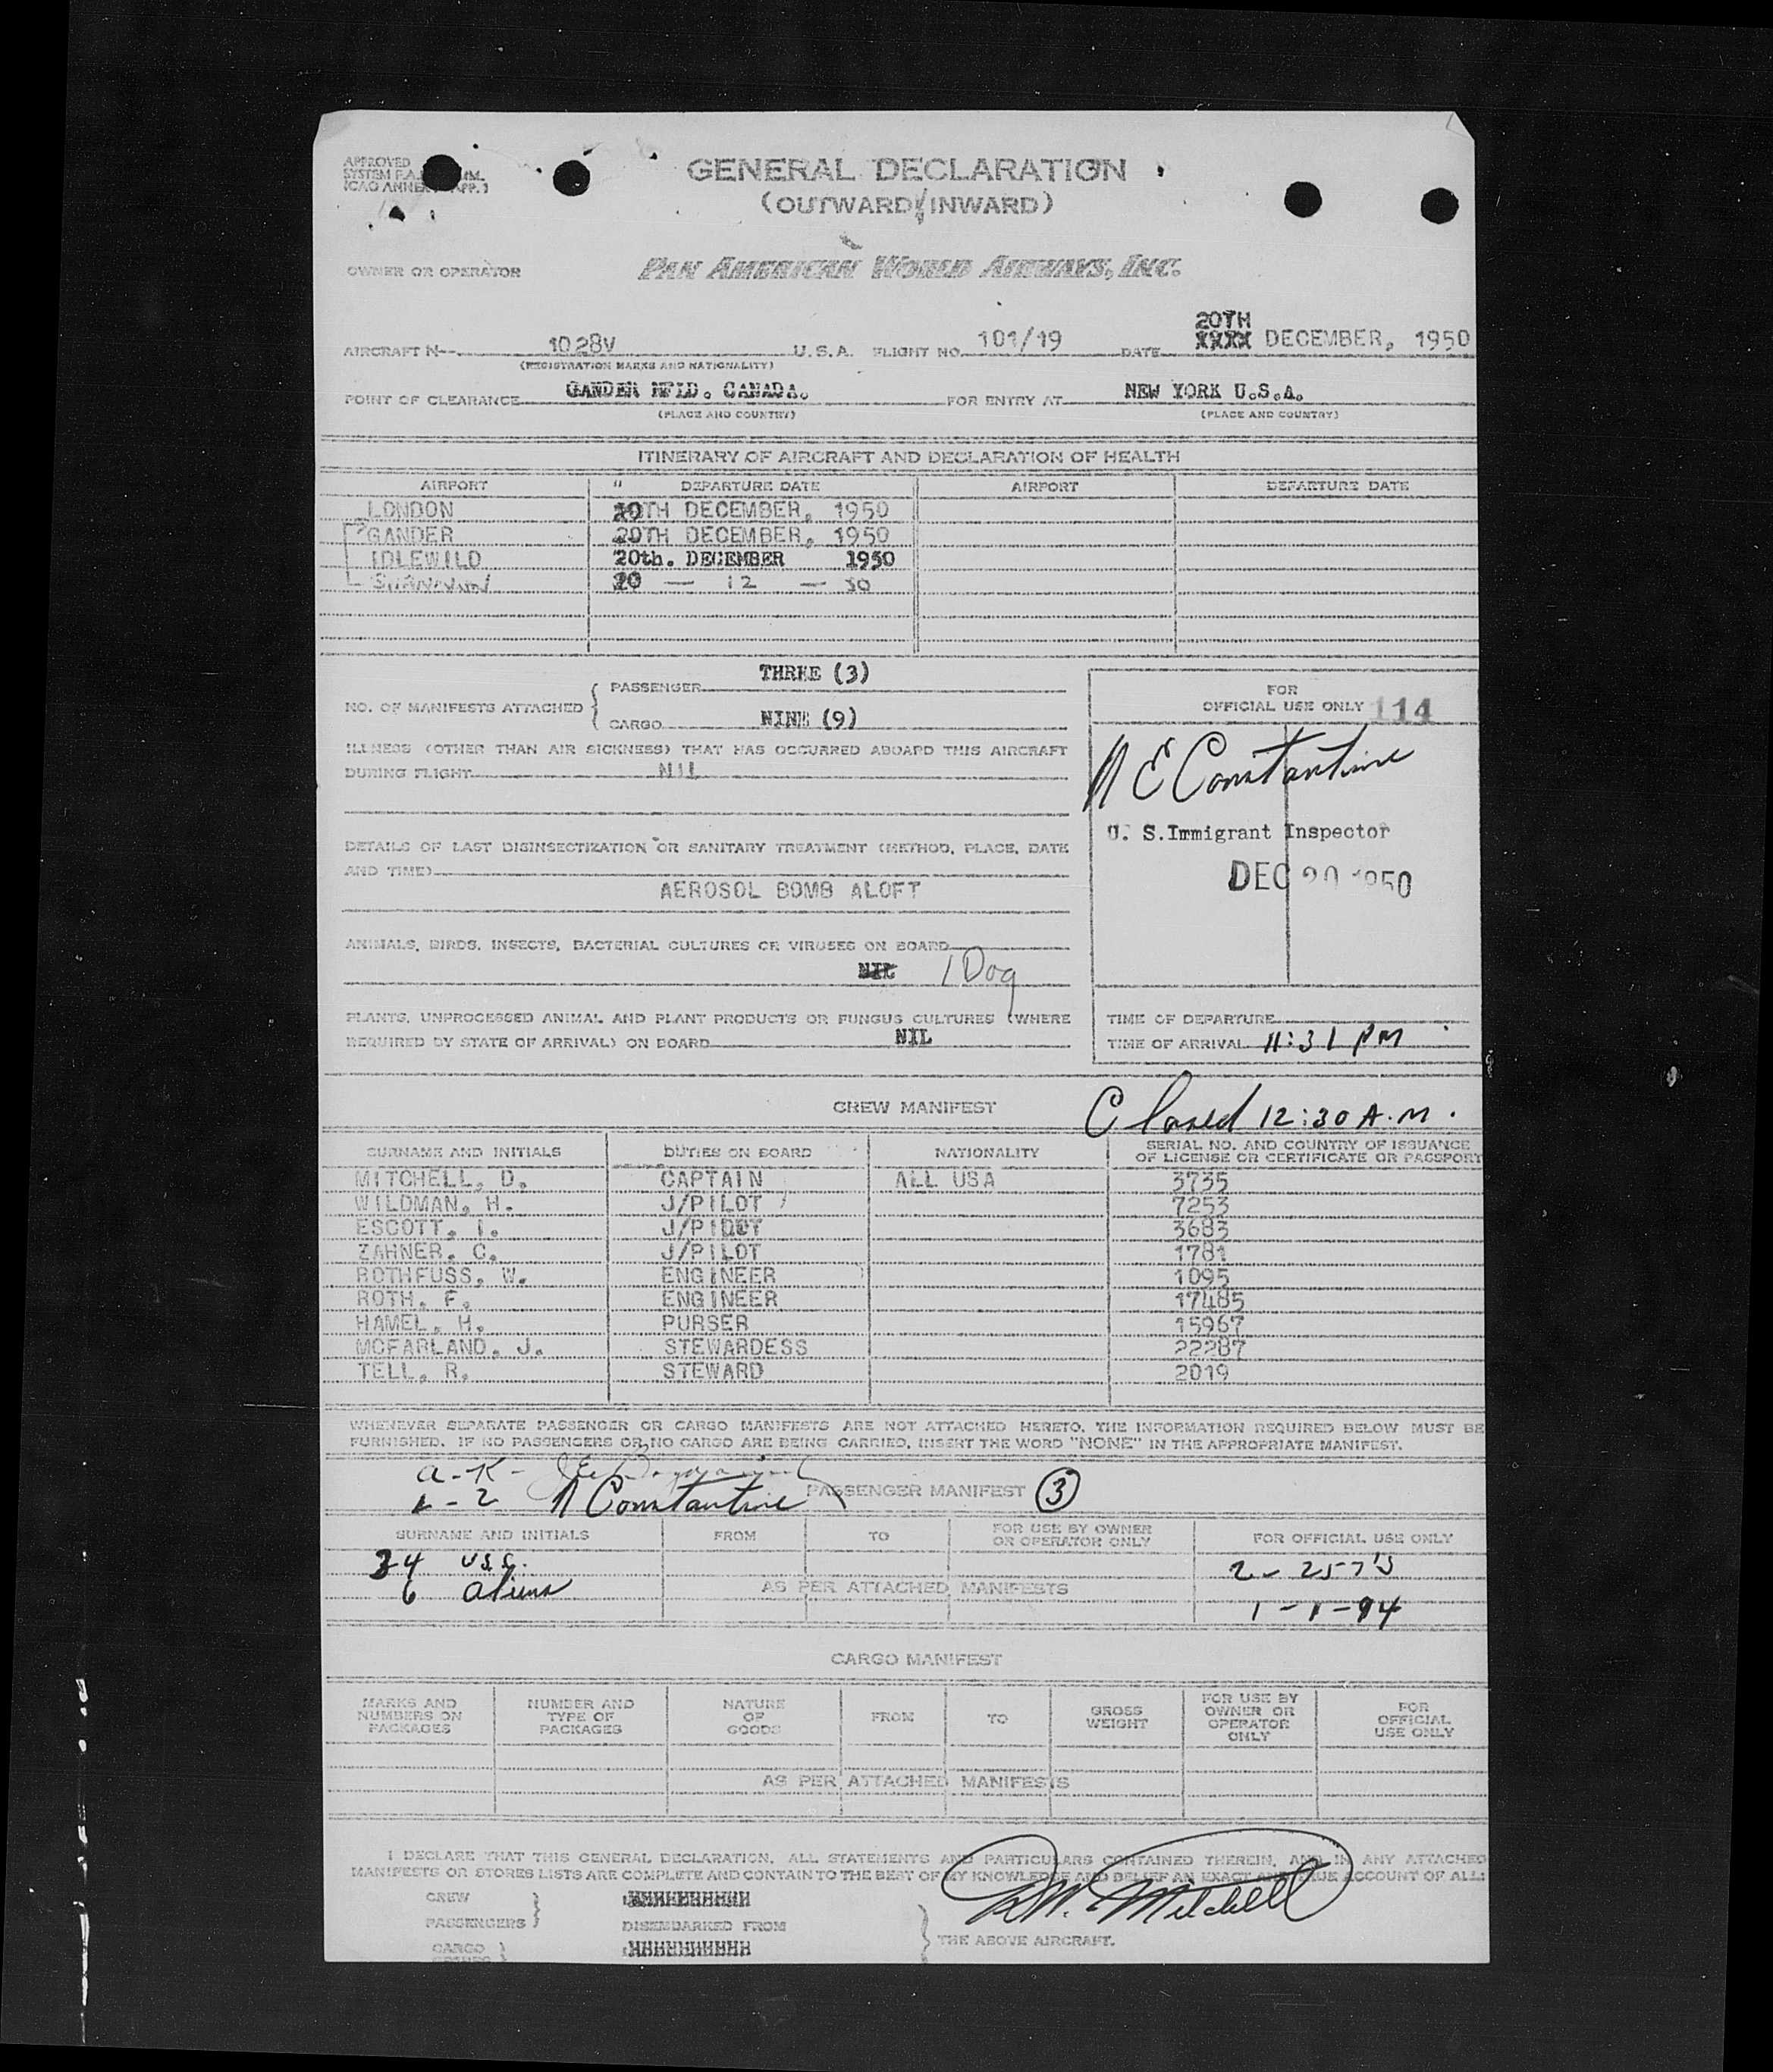 APPROVED
SYSTEM
GENERAL DECLARATION
(OUTWARD/INWARD)
OWNER OR OPERATOR PAN AMERICAN WORLD AIRWAYS, INC.
AIRCRAFT N-- 1028V U.S.A. FLIGHT NO. 101/19 DATE 20TH XXXX DECEMBER, 1950
(REGISTRATION MARKS AND NATIONALITY)
POINT OF CLEARANCE GANDER NFLD. CANADA. FOR ENTRY AT NEW YORK U.S.A.
(PLACE AND COUNTRY) (PLACE AND COUNTRY)
ITINERARY OF AIRCRAFT AND DECLARATION OF HEALTH
AIRPORT DEPARTURE DATE AIRPORT DEPARTURE DATE
LONDON 20TH DECEMBER, 1950
GANDER 20TH DECEMBER, 1950
IDLEWILD 20th. DECEMBER 1950
SHANNON 20 — 12 — 50
NO. OF MANIFESTS ATTACHED { PASSENGER THREE (3)
CARGO NINE (9)
ILLNESS (OTHER THAN AIR SICKNESS) THAT HAS OCCURRED ABOARD THIS AIRCRAFT
DURING FLIGHT NIL
DETAILS OF LAST DISINSECTIZATION OR SANITARY TREATMENT (METHOD, PLACE, DATE
AND TIME)
AEROSOL BOMB ALOFT
ANIMALS, BIRDS, INSECTS, BACTERIAL CULTURES OR VIRUSES ON BOARD
NIL 1 Dog
PLANTS, UNPROCESSED ANIMAL AND PLANT PRODUCTS OR FUNGUS CULTURES (WHERE
REQUIRED BY STATE OF ARRIVAL) ON BOARD NIL
FOR
OFFICIAL USE ONLY 114
N E Constantine
U. S.Immigrant Inspector
DEC 20 1950
TIME OF DEPARTURE
TIME OF ARRIVAL 11:31 PM
CREW MANIFEST Closed 12:30 A.M.
SURNAME AND INITIALS DUTIES ON BOARD NATIONALITY SERIAL NO. AND COUNTRY OF ISSUANCE
OF LICENSE OR CERTIFICATE OR PASSPORT
MITCHELL, D. CAPTAIN ALL USA 3735
WILDMAN, H. J/PILOT 7253
ESCOTT, I. J/PILOT 3683
ZAHNER, C. J/PILOT 1781
ROTHFUSS, W. ENGINEER 1095
ROTH, F. ENGINEER 17485
HAMEL, H. PURSER 15967
MCFARLAND, J. STEWARDESS 22287
TELL, R. STEWARD 2019
WHENEVER SEPARATE PASSENGER OR CARGO MANIFESTS ARE NOT ATTACHED HERETO, THE INFORMATION REQUIRED BELOW MUST BE
FURNISHED. IF NO PASSENGERS OR NO CARGO ARE BEING CARRIED, INSERT THE WORD "NONE" IN THE APPROPRIATE MANIFEST.
a-K-
L-Z N Constantine PASSENGER MANIFEST 3
SURNAME AND INITIALS FROM TO FOR USE BY OWNER
OR OPERATOR ONLY FOR OFFICIAL USE ONLY
34 USC. 2 - 257's
6 aliens AS PER ATTACHED MANIFESTS
1-I-94
CARGO MANIFEST
MARKS AND
NUMBERS ON
PACKAGES NUMBER AND
TYPE OF
PACKAGES NATURE
OF
GOODS FROM TO GROSS
WEIGHT FOR USE BY
OWNER OR
OPERATOR
ONLY FOR
OFFICIAL
USE ONLY
AS PER ATTACHED MANIFESTS
I DECLARE THAT THIS GENERAL DECLARATION, ALL STATEMENTS AND PARTICULARS CONTAINED THEREIN, AND IN ANY ATTACHED
MANIFESTS OR STORES LISTS ARE COMPLETE AND CONTAIN TO THE BEST OF MY KNOWLEDGE AND BELIEF AN EXACT AND TRUE ACCOUNT OF ALL:
CREW
PASSENGERS } DISEMBARKED FROM
CARGO
} THE ABOVE AIRCRAFT.
D.W. Mitchell